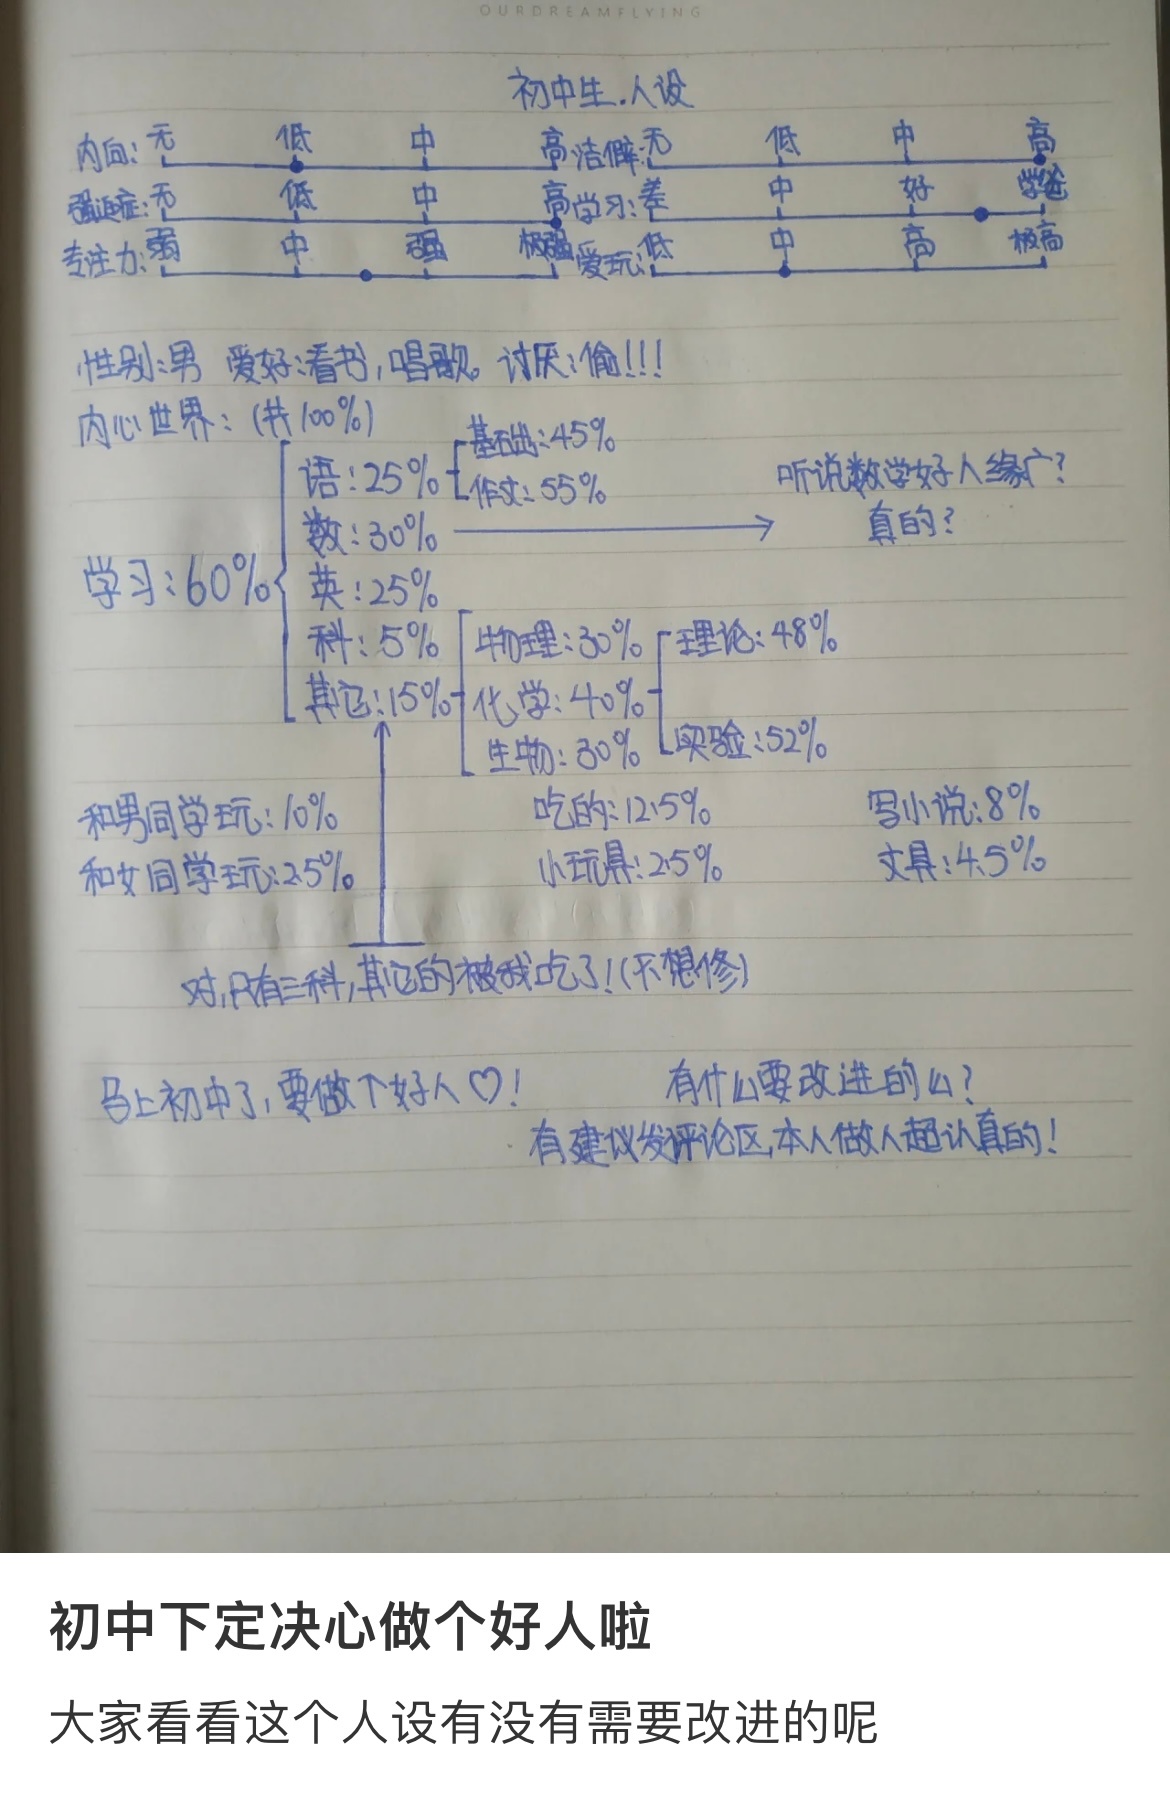 OURDREAMFLYING
初中生.人设
内向: 无 低 中 高 洁癖: 无 低 中 高
强迫症: 无 低 中 高 学习: 差 中 好 学爸
专注力: 弱 中 强 极强 爱玩: 低 中 高 极高
性别:男 爱好:看书,唱歌。讨厌:偷!!!
内心世界: (共100%)
学习:60%
语:25%
基础:45%
作文:55%
数:30%
听说数学好人缘广?
真的?
英:25%
科:5%
其它:15%
物理:30%
化学:40%
理论:48%
实验:52%
生物:30%
和男同学玩:10% 吃的:12.5% 写小说:8%
和女同学玩:2.5% 小玩具:2.5% 文具:4.5%
对,只有三科,其它的被我吃了!(不想修)
马上初中了,要做个好人♡! 有什么要改进的么?
有建议发评论区,本人做人超认真的!
初中下定决心做个好人啦
大家看看这个人设有没有需要改进的呢